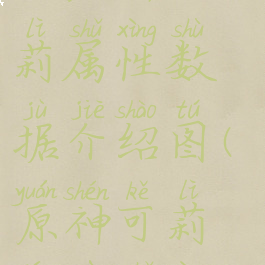 lì shǔ xìng shù
莉属性数
jù jiè shào tú
据介绍图(
yuán shén kě lì
原神可莉